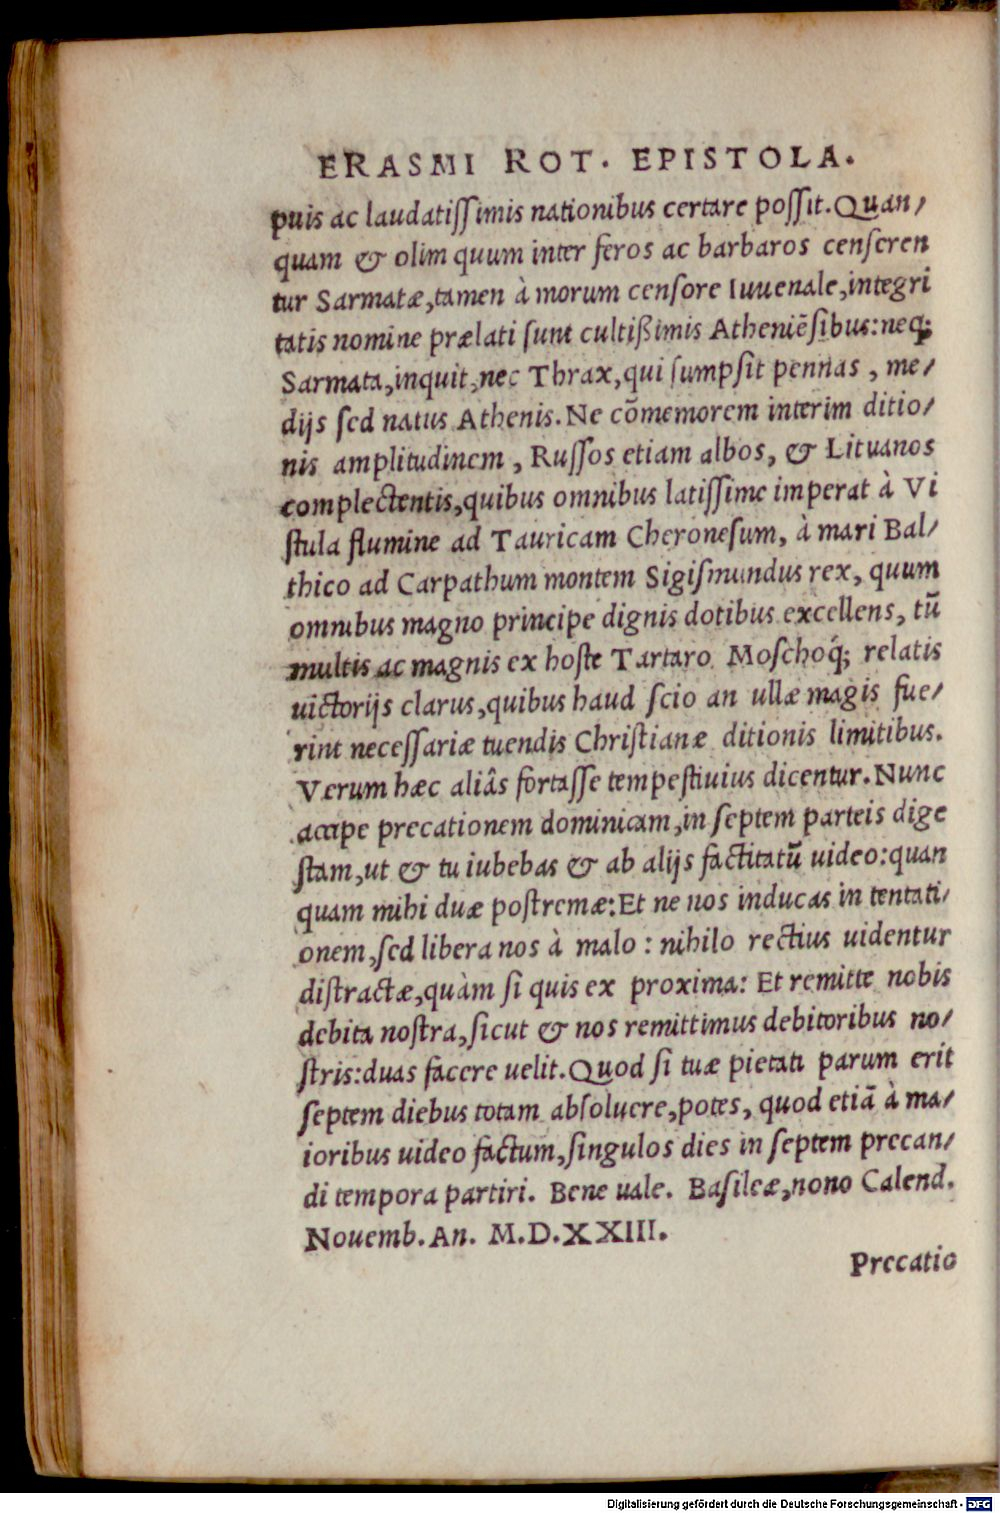 ERASMI ROT. EPISTOLA.
puis ac laudatiſſimis nationibus certare poſſit. Quan/
quam & olim quum inter feros ac barbaros cenſeren
tur Sarmatæ, tamen à morum cenſore Iuuenale, integri
tatis nomine prælati ſunt cultißimis Atheniẽſibus: neq;
Sarmata, inquit, nec Thrax, qui ſumpſit pennas, me/
dijs ſed natus Athenis. Ne cõmemorem interim ditio/
nis amplitudinem, Ruſſos etiam albos, & Lituanos
complectentis, quibus omnibus latiſſime imperat à Vi
ſtula flumine ad Tauricam Cheroneſum, à mari Bal/
thico ad Carpathum montem Sigiſmundus rex, quum
omnibus magno principe dignis dotibus excellens, tũ
multis ac magnis ex hoſte Tartaro Moſchoq́; relatis
uictorijs clarus, quibus haud ſcio an ullæ magis fue/
rint neceſſariæ tuendis Chriſtianæ ditionis limitibus.
Verum hæc aliâs fortaſſe tempeſtiuius dicentur. Nunc
accipe precationem dominicam, in ſeptem parteis dige
ſtam, ut & tu iubebas & ab alijs factitatũ uideo: quan
quam mihi duæ poſtremæ: Et ne nos inducas in tentati/
onem, ſed libera nos à malo: nihilo rectius uidentur
diſtractæ, quàm ſi quis ex proxima: Et remitte nobis
debita noſtra, ſicut & nos remittimus debitoribus no/
ſtris: duas facere uelit. Quod ſi tuæ pietati parum erit
ſeptem diebus totam abſoluere, potes, quod etiã à ma/
ioribus uideo factum, ſingulos dies in ſeptem precan/
di tempora partiri. Bene uale. Baſileæ, nono Calend.
Nouemb. An. M.D.XXIII.
Precatio
Digitalisierung gefördert durch die Deutsche Forschungsgemeinschaft - DFG